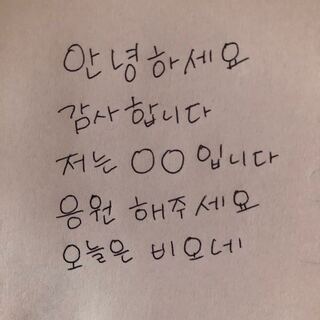 안녕하세요
감사합니다
저는 OO입니다
응원 해주세요
오늘은 비오네